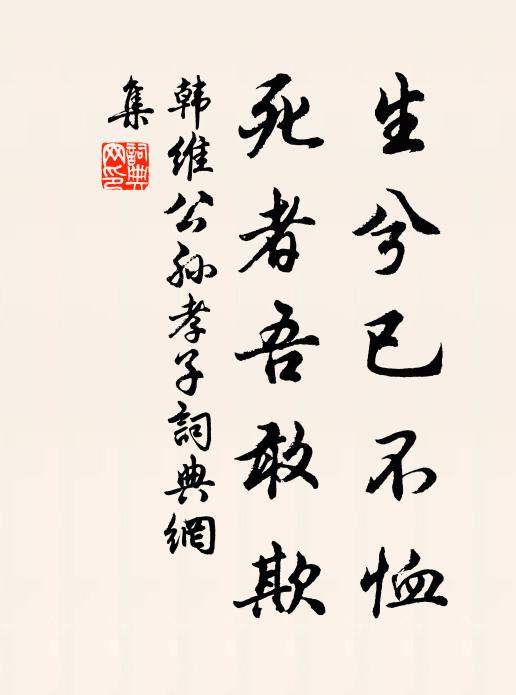 生兮已不恤
死者吾敢欺
韩維公孙孝子詞典網
集
詞典網印